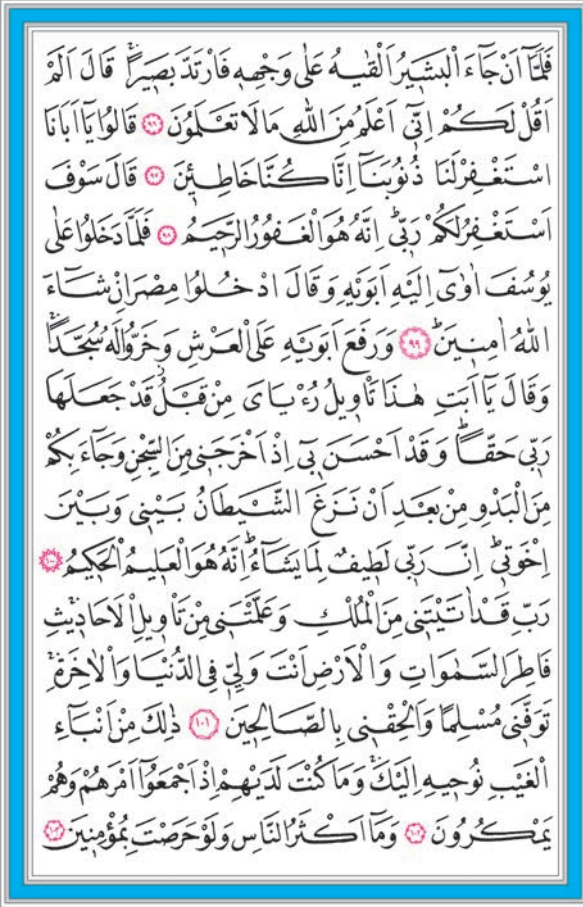 فَلَمَّٓا اَنْ جَٓاءَ الْبَشٖيرُ اَلْقٰيهُ عَلٰى وَجْهِهٖ فَارْتَدَّ بَصٖيرًاۚ قَالَ اَلَمْ
اَقُلْ لَكُمْ اِنّٖٓي اَعْلَمُ مِنَ اللّٰهِ مَا لَا تَعْلَمُونَ ﴿٩٦﴾ قَالُوا يَٓا اَبَانَا
اسْتَغْفِرْ لَنَا ذُنُوبَنَٓا اِنَّا كُنَّا خَاطِـٖٔينَ ﴿٩٧﴾ قَالَ سَوْفَ
اَسْتَغْفِرُ لَكُمْ رَبّٖيؕ اِنَّهُ هُوَ الْغَفُورُ الرَّحٖيمُ ﴿٩٨﴾ فَلَمَّا دَخَلُوا عَلٰى
يُوسُفَ اٰوٰٓى اِلَيْهِ اَبَوَيْهِ وَقَالَ ادْخُلُوا مِصْرَ اِنْ شَٓاءَ
اللّٰهُ اٰمِنٖينَؕ ﴿٩٩﴾ وَرَفَعَ اَبَوَيْهِ عَلَى الْعَرْشِ وَخَرُّوا لَهُ سُجَّدًاۚ
وَقَالَ يَٓا اَبَتِ هٰذَا تَأْوٖيلُ رُءْيَايَ مِنْ قَبْلُؗ قَدْ جَعَلَهَا
رَبّٖي حَقًّاؕ وَقَدْ اَحْسَنَ بٖٓي اِذْ اَخْرَجَنٖي مِنَ السِّجْنِ وَجَٓاءَ بِكُمْ
مِنَ الْبَدْوِ مِنْ بَعْدِ اَنْ نَزَغَ الشَّيْطَانُ بَيْنٖي وَبَيْنَ
اِخْوَتٖيؕ اِنَّ رَبّٖي لَطٖيفٌ لِمَا يَشَٓاءُؕ اِنَّهُ هُوَ الْعَلٖيمُ الْحَكٖيمُ ﴿١٠٠﴾
رَبِّ قَدْ اٰتَيْتَنٖي مِنَ الْمُلْكِ وَعَلَّمْتَنٖي مِنْ تَأْوٖيلِ الْاَحَادٖيثِۚ
فَاطِرَ السَّمٰوَاتِ وَالْاَرْضِ اَنْتَ وَلِيّٖ فِي الدُّنْيَا وَالْاٰخِرَةِۚ
تَوَفَّنٖي مُسْلِمًا وَاَلْحِقْنٖي بِالصَّالِحٖينَ ﴿١٠١﴾ ذٰلِكَ مِنْ اَنْبَٓاءِ
الْغَيْبِ نُوحٖيهِ اِلَيْكَۚ وَمَا كُنْتَ لَدَيْهِمْ اِذْ اَجْمَعُٓوا اَمْرَهُمْ وَهُمْ
يَمْكُرُونَ ﴿١٠٢﴾ وَمَٓا اَكْثَرُ النَّاسِ وَلَوْ حَرَصْتَ بِمُؤْمِنٖينَ ﴿١٠٣﴾